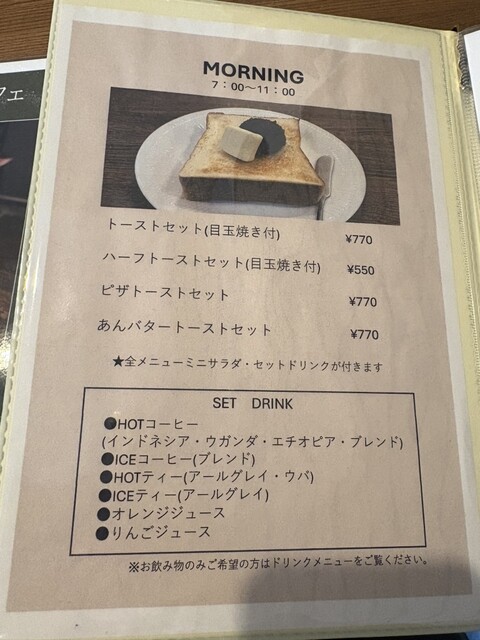 フェ
MORNING
7：00～11：00
トーストセット(目玉焼き付) ¥770
ハーフトーストセット(目玉焼き付) ¥550
ピザトーストセット ¥770
あんバタートーストセット ¥770
★全メニューミニサラダ・セットドリンクが付きます
SET DRINK
●HOTコーヒー
(インドネシア・ウガンダ・エチオピア・ブレンド)
●ICEコーヒー(ブレンド)
●HOTティー(アールグレイ・ウバ)
●ICEティー(アールグレイ)
●オレンジジュース
●りんごジュース
※お飲み物のみご希望の方はドリンクメニューをご覧ください。